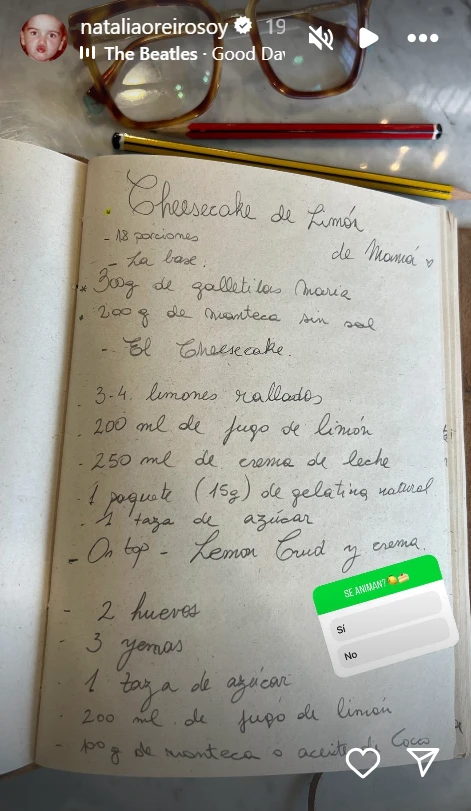 nataliaoreirosoy 19
The Beatles · Good Day
Cheesecake de Limón
de Mamá
- 18 porciones
- La base.
300g de galletitas Maria
200 g de manteca sin sal
- El Cheesecake.
3-4 limones rallados
200 ml de jugo de limón
250 ml de crema de leche
1 paquete (15g) de gelatina natural
1 taza de azúcar
- On top - Lemon Crud y crema.
SE ANIMAN?
Sí
No
- 2 huevos
- 3 yemas
- 1 taza de azúcar
- 200 ml de jugo de limón
- 100 g de manteca o aceite de Coco